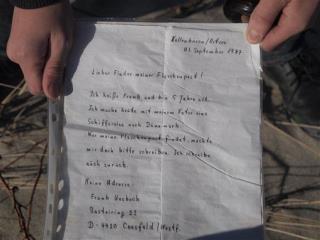 01. September 1987
Lieber Finder meiner Flaschenpost!
Ich heiße Frank und bin 5 Jahre alt.
Ich mache heute mit meinem Vater eine
Schiffsreise nach Dänemark.
Wer meine Flaschenpost findet, möchte
mir doch bitte schreiben. Ich schreibe
auch zurück.
Meine Adresse:
Frank
22
D-4420 Coesfeld/Westf.